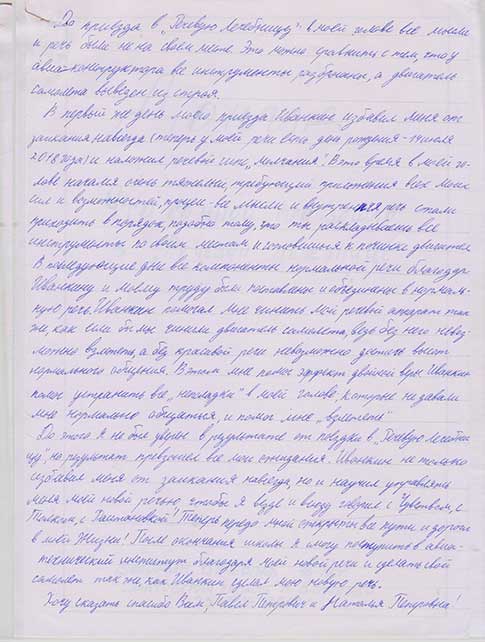 До приезда в „Речевую Лечебницу" в моей голове все мысли
и речь были не на своём месте. Это можно сравнить с тем, что у
авиа-конструктора все инструменты разбросаны, а двигатель
самолёта выведен из строя.
В первый же день моего приезда Иванкин избавил меня от
заикания навсегда (теперь у моей речи есть день рождения - 19 июля
2018 года) и наложил речевой гипс „молчания". В это время в моей го-
лове начался очень тяжёлый, требующий приложения всех моих
сил и возможностей, процесс - все мысли и внутренняя речь стали
приходить в порядок, подобно тому, что ты раскладываешь все
инструменты по своим местам и готовишься к починке двигателя.
В последующие дни все компоненты нормальной речи благодаря
Иванкину и моему труду были поставлены и объединены в нормаль-
ную речь. Иванкин помогал мне чинить мой речевой аппарат так
же, как если бы мы чинили двигатель самолёта, ведь без него невоз-
можно взлететь, а без красивой речи невозможно достичь высот
нормального общения. В этом мне помог эффект двойной веры. Иванкин
помог устранить все „неполадки" в моей голове, которые не давали
мне нормально общаться, и помог мне „взлететь"
До этого я не был уверен в результате от поездки в „Речевую лечебни-
цу", но результат превзошёл все мои ожидания. Иванкин не только
избавил меня от заикания навсегда, но и научил управлять
моей новой речью, чтобы я везде и всюду говорил с Чувством, с
Толком, с Расстановкой! Теперь передо мной открыты все пути и дороги
в моей Жизни! После окончания школы я смогу поступить в авиа-
технический институт благодаря моей новой речи и сделать свой
самолёт так же, как Иванкин сделал мою новую речь.
Хочу сказать спасибо Вам, Павел Петрович и Наталья Петровна!